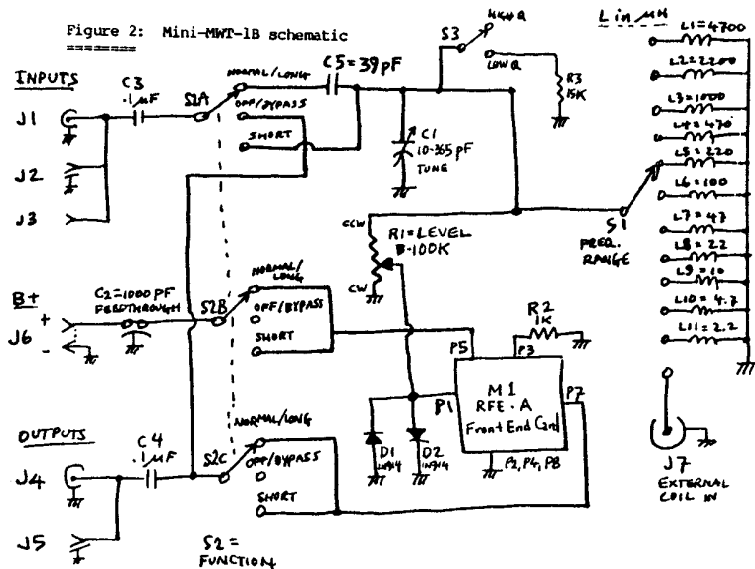 Figure 2: Mini-MWT-1B schematic
INPUTS
J1
J2
J3
C3
.1μF
S2A
NORMAL/LONG
OFF/BYPASS
SHORT
C5=39pF
C1
10-365 pF
TUNE
S3
HIGH Q
LOW Q
R3
15K
L in μH
L1=4700
L2=2200
L3=1000
L4=470
L5=220
L6=100
L7=47
L8=22
L9=10
L10=4.7
L11=2.2
S1
FREQ.
RANGE
CCW
R1=LEVEL
B-100K
CW
B+
J6
+
-
C2=1000 PF
FEEDTHROUGH
S2B
NORMAL/
LONG
OFF/BYPASS
SHORT
R2
1K
P5
P3
P1
P7
M1
RFE-A
Front End Card
P2, P4, P8
D1
1N914
D2
1N914
OUTPUTS
J4
J5
C4
.1μF
S2C
NORMAL/LONG
OFF/BYPASS
SHORT
S2=
FUNCTION
J7
EXTERNAL
COIL IN